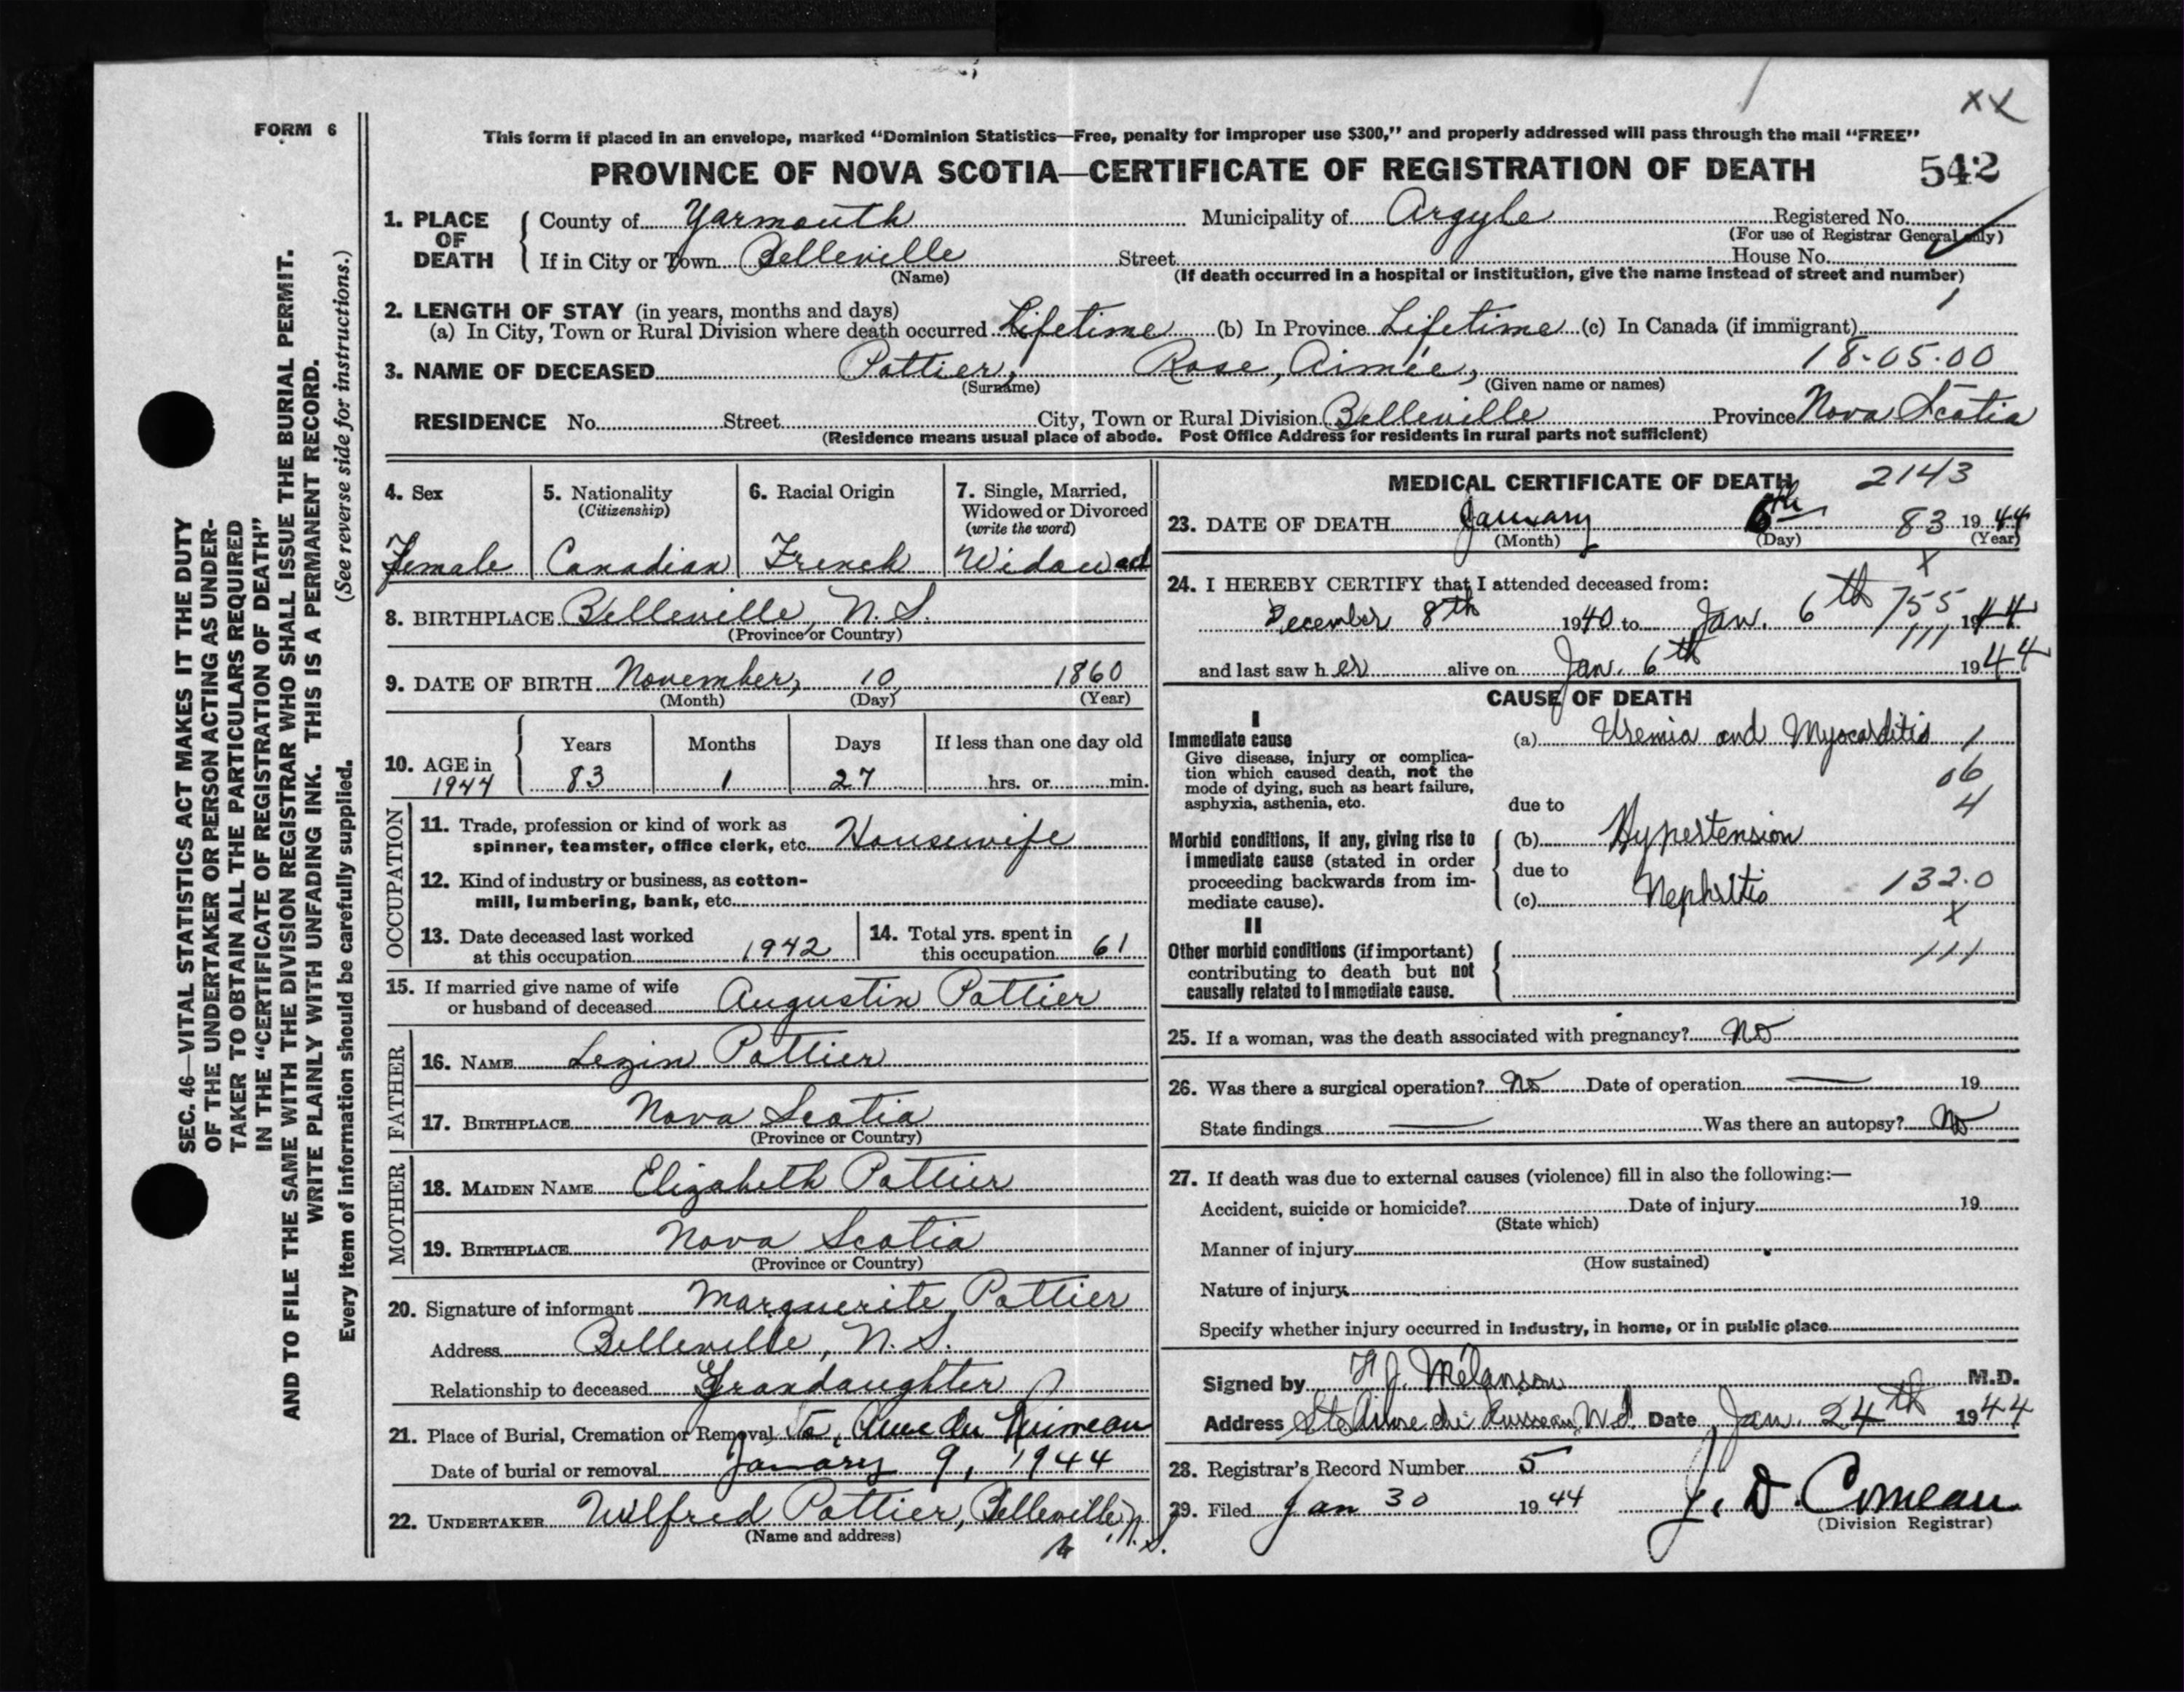 XX
FORM 6
This form if placed in an envelope, marked “Dominion Statistics—Free, penalty for improper use $300,” and properly addressed will pass through the mail “FREE”
PROVINCE OF NOVA SCOTIA—CERTIFICATE OF REGISTRATION OF DEATH 542
1. PLACE OF DEATH
County of Yarmouth Municipality of Argyle Registered No.
(For use of Registrar General only)
If in City or Town Belleville Street House No.
(Name) (If death occurred in a hospital or institution, give the name instead of street and number)
2. LENGTH OF STAY (in years, months and days)
(a) In City, Town or Rural Division where death occurred Lifetime (b) In Province Lifetime (c) In Canada (if immigrant)
3. NAME OF DECEASED Pottier, Rose, Aimée, 18-05-00
(Surname) (Given name or names)
RESIDENCE No. Street City, Town or Rural Division Belleville Province Nova Scotia
(Residence means usual place of abode. Post Office Address for residents in rural parts not sufficient)
4. Sex
Female
5. Nationality
(Citizenship)
Canadian
6. Racial Origin
French
7. Single, Married,
Widowed or Divorced
(write the word)
Widowed
8. BIRTHPLACE Belleville, N.S.
(Province or Country)
9. DATE OF BIRTH November, 10, 1860
(Month) (Day) (Year)
10. AGE in 1944
Years Months Days If less than one day old
83 1 27 hrs. or min.
OCCUPATION
11. Trade, profession or kind of work as
spinner, teamster, office clerk, etc. Housewife
12. Kind of industry or business, as cotton-
mill, lumbering, bank, etc.
13. Date deceased last worked
at this occupation 1942
14. Total yrs. spent in
this occupation 61
15. If married give name of wife
or husband of deceased Augustin Pottier
FATHER
16. NAME Lezin Pottier
17. BIRTHPLACE Nova Scotia
(Province or Country)
MOTHER
18. MAIDEN NAME Elizabeth Pottier
19. BIRTHPLACE Nova Scotia
(Province or Country)
20. Signature of informant Marguerite Pottier
Address Belleville, N.S.
Relationship to deceased Grandaughter
21. Place of Burial, Cremation or Removal
Date of burial or removal January 9, 1944
22. UNDERTAKER Wilfred Pottier, Belleville, N.S.
(Name and address)
MEDICAL CERTIFICATE OF DEATH 2143
23. DATE OF DEATH January 6th 83 1944
(Month) (Day) (Year)
X
24. I HEREBY CERTIFY that I attended deceased from:
December 8th 1940 to Jan. 6th 755 1944
111
and last saw her alive on Jan. 6th 1944
CAUSE OF DEATH
I
Immediate cause
Give disease, injury or complica-
tion which caused death, not the
mode of dying, such as heart failure,
asphyxia, asthenia, etc.
(a) Uremia and Myocarditis 1
06
4
due to
Morbid conditions, if any, giving rise to
immediate cause (stated in order
proceeding backwards from im-
mediate cause).
(b) Hypertension
due to
(c) Nephritis 132.0
X
II
Other morbid conditions (if important)
contributing to death but not
causally related to immediate cause.
111
25. If a woman, was the death associated with pregnancy? No
26. Was there a surgical operation? No Date of operation — 19
State findings — Was there an autopsy? No
27. If death was due to external causes (violence) fill in also the following:—
Accident, suicide or homicide? Date of injury 19
(State which)
Manner of injury
(How sustained)
Nature of injury
Specify whether injury occurred in industry, in home, or in public place
Signed by J. Mélanson M.D.
Address Date Jan. 24th 1944
28. Registrar's Record Number 5
29. Filed Jan 30 1944 J. D. Comeau
(Division Registrar)
SEC. 46—VITAL STATISTICS ACT MAKES IT THE DUTY
OF THE UNDERTAKER OR PERSON ACTING AS UNDER-
TAKER TO OBTAIN ALL THE PARTICULARS REQUIRED
IN THE “CERTIFICATE OF REGISTRATION OF DEATH”
AND TO FILE THE SAME WITH THE DIVISION REGISTRAR WHO SHALL ISSUE THE BURIAL PERMIT.
WRITE PLAINLY WITH UNFADING INK. THIS IS A PERMANENT RECORD.
Every item of information should be carefully supplied. (See reverse side for instructions.)